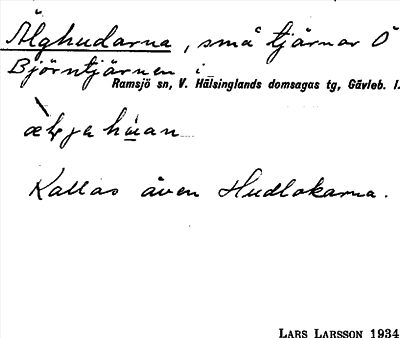 Älghudarna, små tjärnar Ö
Björntjärnen i
Ramsjö sn, V. Hälsinglands domsagas tg, Gävleb. l.
Kallas även Hudlokarna.
LARS LARSSON 1934